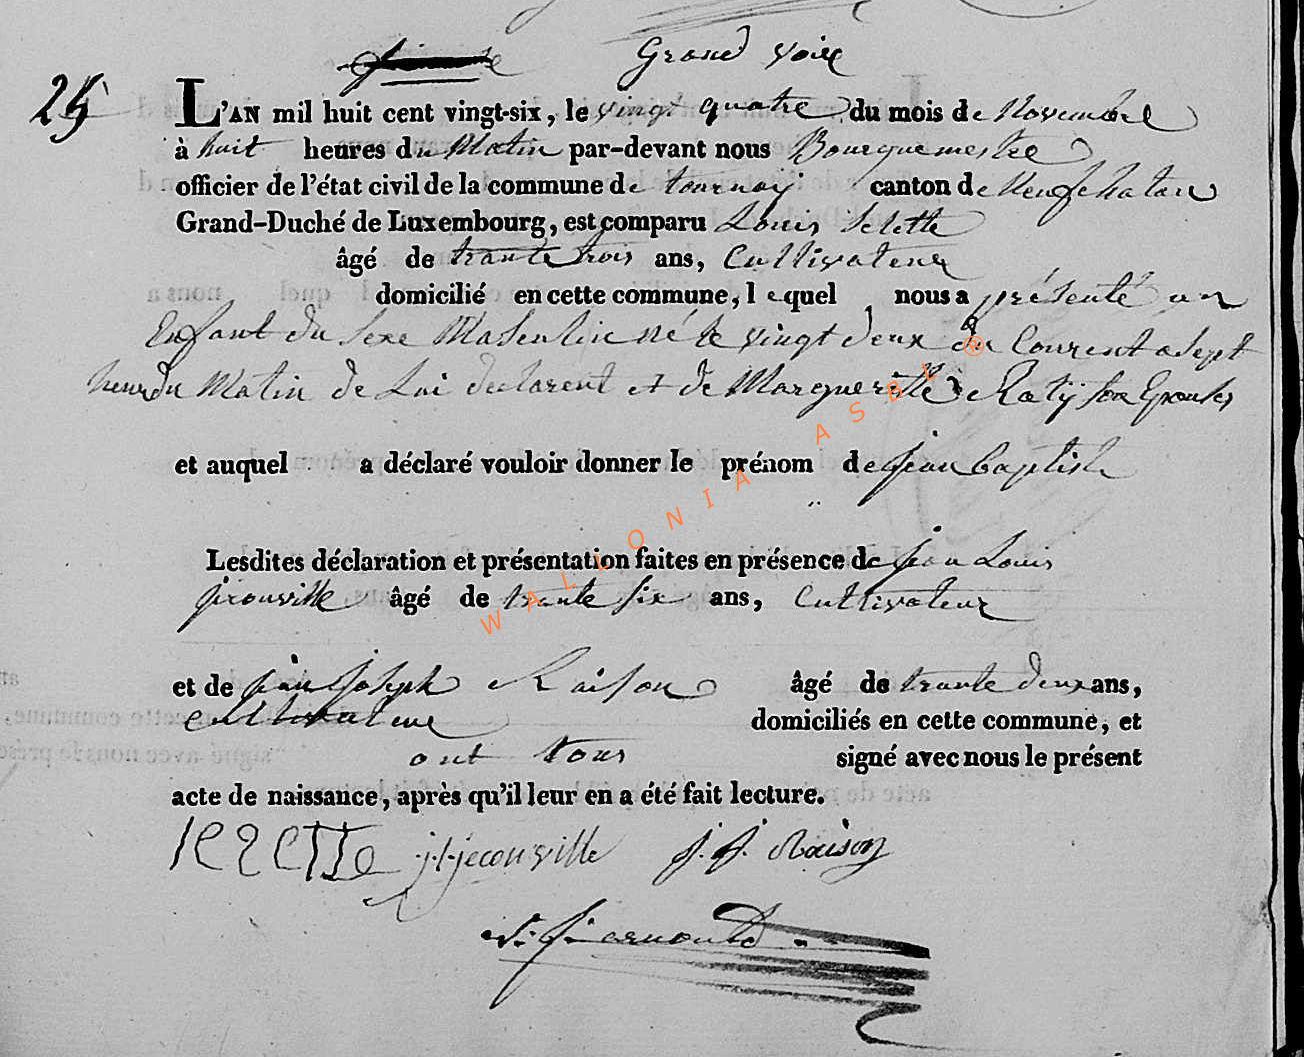 Grand voir
25
L'AN mil huit cent vingt-six, le vingt quatre du mois de Novembre
à huit heures du Matin par-devant nous Bourguemestre
officier de l'état civil de la commune de tournay canton de Neufchatau
Grand-Duché de Luxembourg, est comparu Louis
âgé de trante trois ans, Cultivateur
domicilié en cette commune, lequel nous a présenté un
Enfant du sexe Masculin né le vingt deux du Courent a sept
heur du Matin de Lui declarent et de Margueritte Raty son Epouse
et auquel a déclaré vouloir donner le prénom de jean baptiste
Lesdites déclaration et présentation faites en présence de jean Louis
jirouville âgé de trante six ans, Cultivateur
et de jean joseph Raison âgé de trante deux ans,
cultivateur domiciliés en cette commune, et
ont tous signé avec nous le présent
acte de naissance, après qu'il leur en a été fait lecture.
j. l. jerouville j. j. Raison
arnould
WALLONIA ASBL ®